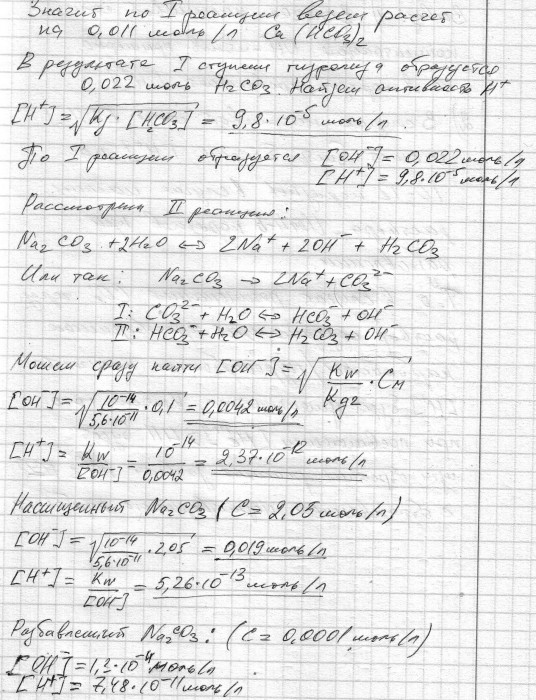 Значит по I реакции ведем расчет
на 0,011 моль/л Ca(HCO3)2
В результате I ступени гидролиза образуется
0,022 моль H2CO3. Найдем активность H+
[H+] = √Kд · [H2CO3] = 9,8·10^-5 моль/л.
По I реакции образуется [OH-] = 0,022 моль/л
[H+] = 9,8·10^-5 моль/л
Рассмотрим II реакцию:
Na2CO3 + 2H2O ↔ 2Na+ + 2OH- + H2CO3
Или так: Na2CO3 → 2Na+ + CO3^2-
I: CO3^2- + H2O ↔ HCO3- + OH-
II: HCO3- + H2O ↔ H2CO3 + OH-
Можем сразу найти [OH-] = √(Kw/Kд2 · CM)
[OH-] = √(10^-14/5,6·10^-11 · 0,1) = 0,0042 моль/л
[H+] = Kw/[OH-] = 10^-14/0,0042 = 2,37·10^-12 моль/л
Насыщенный Na2CO3 (C = 2,05 моль/л)
[OH-] = √(10^-14/5,6·10^-11 · 2,05) = 0,019 моль/л
[H+] = Kw/[OH-] = 5,26·10^-13 моль/л
Разбавленный Na2CO3: (C = 0,0001 моль/л)
[OH-] = 1,3·10^-4 моль/л
[H+] = 7,48·10^-11 моль/л